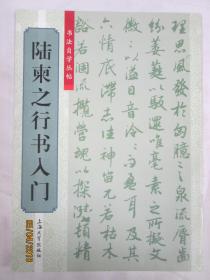 书法自学丛帖
陆柬之行书入门
上海大学出版社
理思風發於胸臆言泉流脣齒
紛葳蕤以馺遝唯毫素之所擬文
徽〻以溢目音泠〻而盈耳及其
六情底滯志往神留兀若枯木
豁若涸流攬營魂以探賾頓精